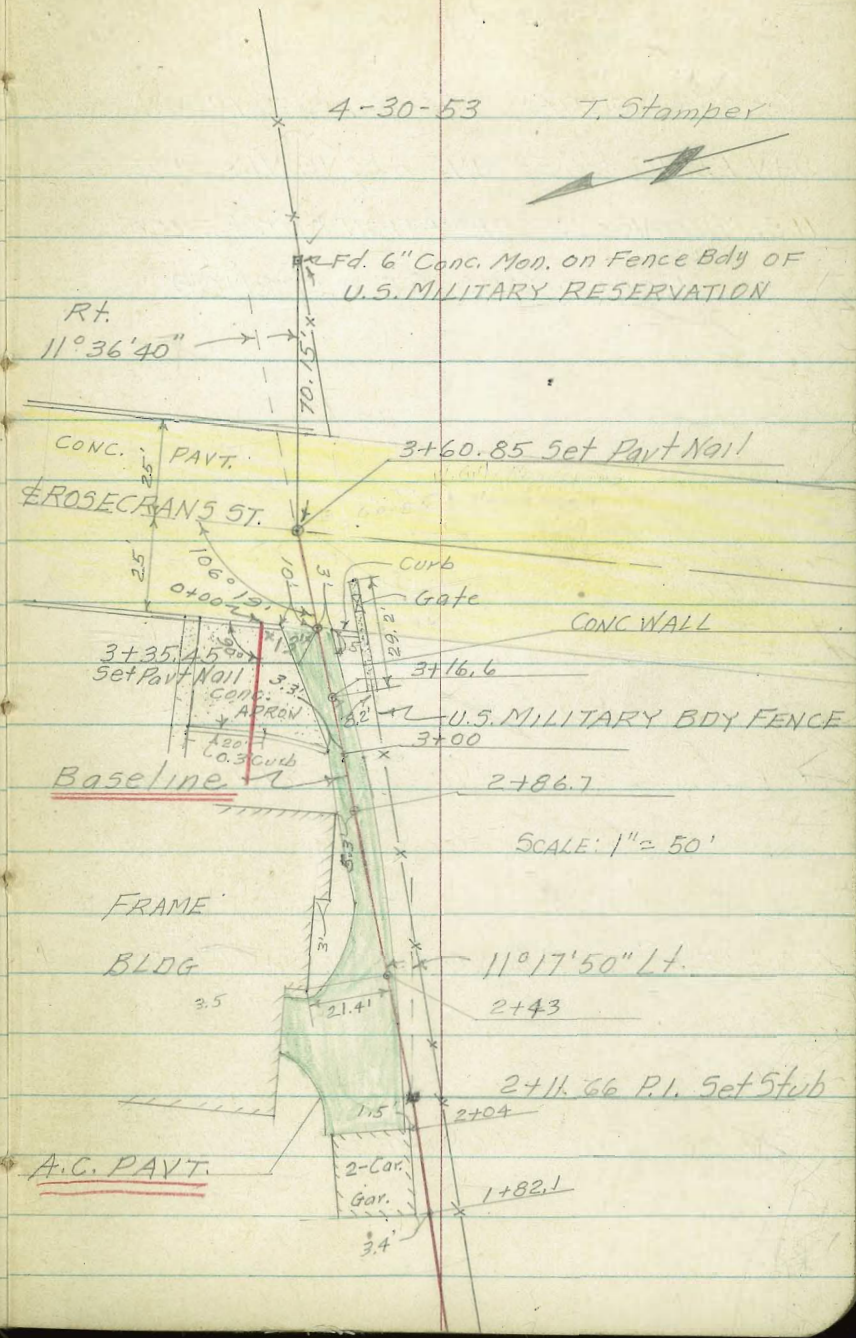 4-30-53 T. Stamper
Fd. 6" Conc. Mon. on Fence Bdy OF
U.S. MILITARY RESERVATION
Rt.
11°36'40"
70.15'
CONC. PAVT.
25'
3+60.85 Set Pavt Nail
℄ ROSECRANS ST.
25'
106°19'
0+00
10'
3'
Curb
Gate
29.2'
CONC WALL
90°
3+35.45
Set Pavt Nail
3+16.6
Conc.
APRON
3.3'
8.2'
U.S. MILITARY BDY FENCE
20'
0.3' Curb
3+00
Baseline
2+86.7
5.3'
SCALE: 1" = 50'
FRAME
BLDG
3'
11°17'50" Lt.
3.5
21.4'
2+43
2+11.66 P.I. Set Stub
1.5'
2+04
A.C. PAVT.
2-Car.
Gar.
1+82.1
3.4'